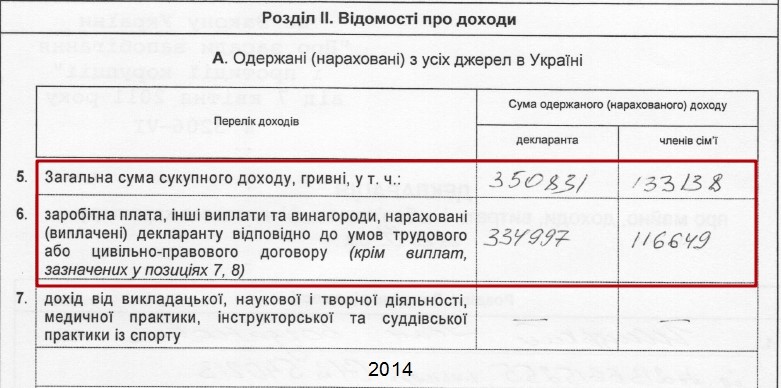 Розділ II. Відомості про доходи
А. Одержані (нараховані) з усіх джерел в Україні
Перелік доходів
Сума одержаного (нарахованого) доходу
декларанта
членів сім'ї
5. Загальна сума сукупного доходу, гривні, у т. ч.: 350831 133138
6. заробітна плата, інші виплати та винагороди, нараховані
(виплачені) декларанту відповідно до умов трудового
або цивільно-правового договору (крім виплат,
зазначених у позиціях 7, 8)
334997 116649
7. дохід від викладацької, наукової і творчої діяльності,
медичної практики, інструкторської та суддівської
практики із спорту
— —
2014